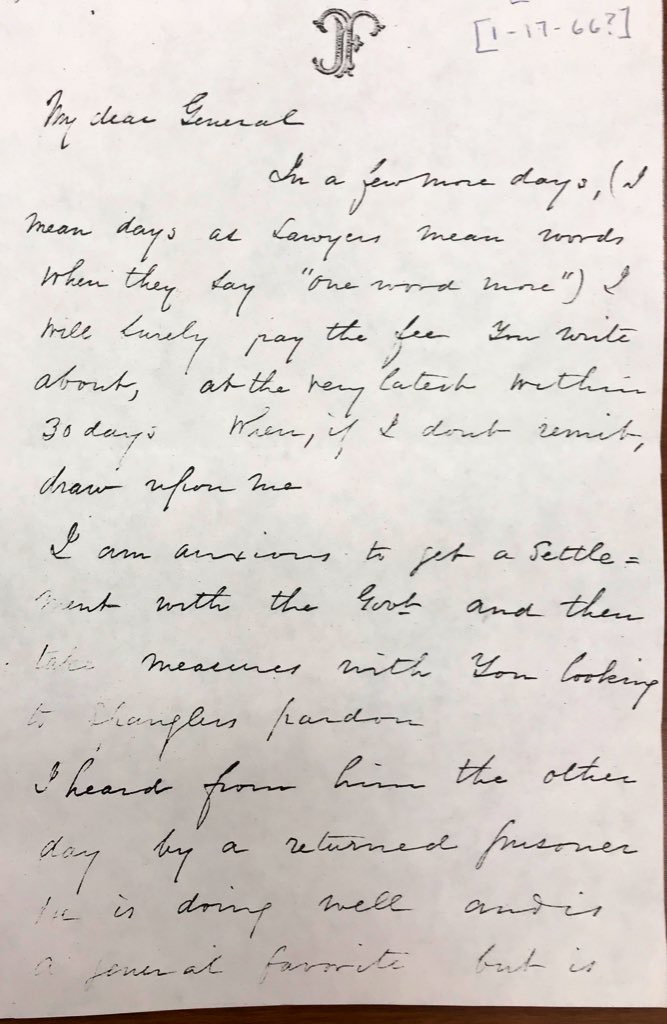 JF
[1-17-66?]
My dear General
In a few more days, (I
mean days as Lawyers mean words
when they say "one word more") I
will surely pay the fee you write
about, at the very latest within
30 days When, if I dont remit,
draw upon me
I am anxious to get a Settle=
ment with the Govt and then
take measures with You looking
to Spanglers pardon
I heard from him the other
day by a returned prisoner
he is doing well and is
a general favorite but is